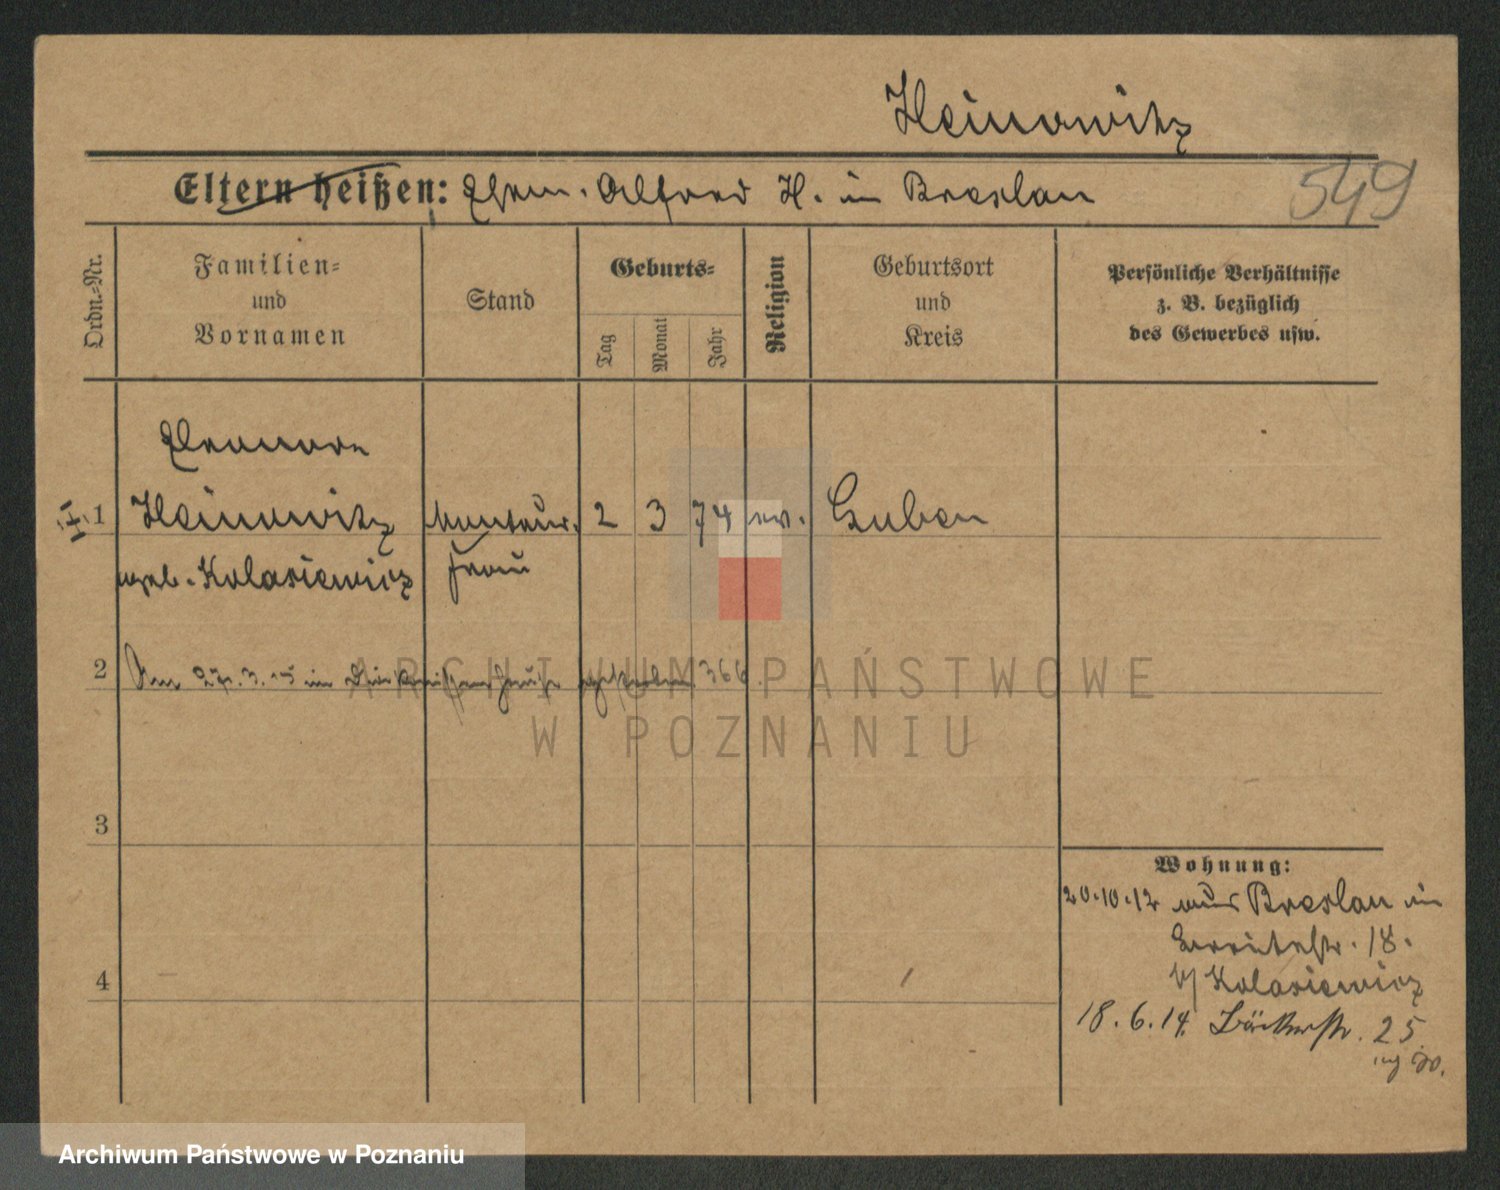 Heinowitz
Eltern heißen: Ehem. Alfred H. in Breslau
549
Ordn.-Nr.
Familien-
und
Vornamen
Stand
Geburts-
Tag
Monat
Jahr
Religion
Geburtsort
und
Kreis
Persönliche Verhältnisse
z. B. bezüglich
des Gewerbes usw.
Eleonore
1 Heinowitz Monteur. 2 3 74 ev. Guben
geb. Kolasiewicz frau
2 Am 27.3.15 im Diakonissenhause gestorben 366
ARCHIWUM PAŃSTWOWE
W POZNANIU
3
4
Wohnung:
20.10.12 aus Breslau in
18.
b/ Kolasiewicz
18.6.14. Bäckerstr. 25
Archiwum Państwowe w Poznaniu